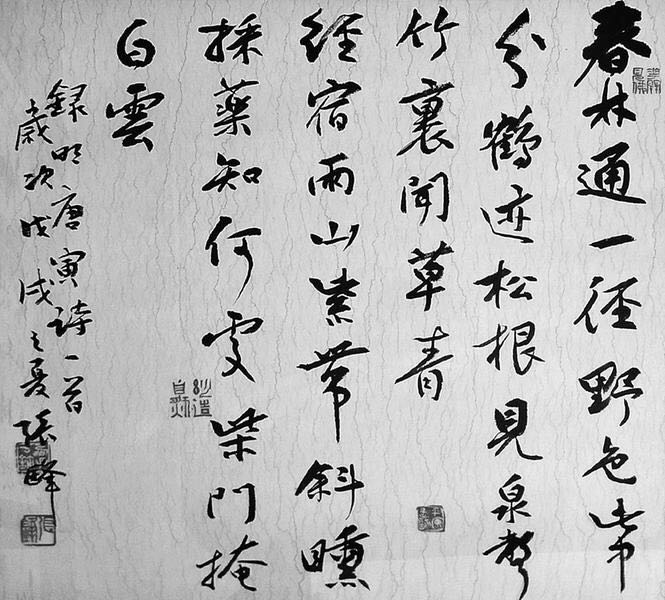 春林通一徑野色此中
分鶴迹松根見泉聲
竹裏聞草青
經宿雨山紫帶斜曛
採藥知何處柴門掩
白雲
録明唐寅詩一首
歲次戊戌之夏張峰
妙造自然